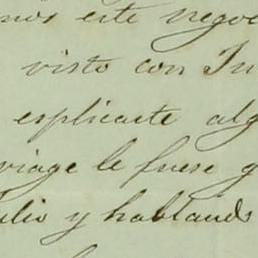 este nego
visto con In
esplicarte alg
viage le fuese g
ulio y hablando